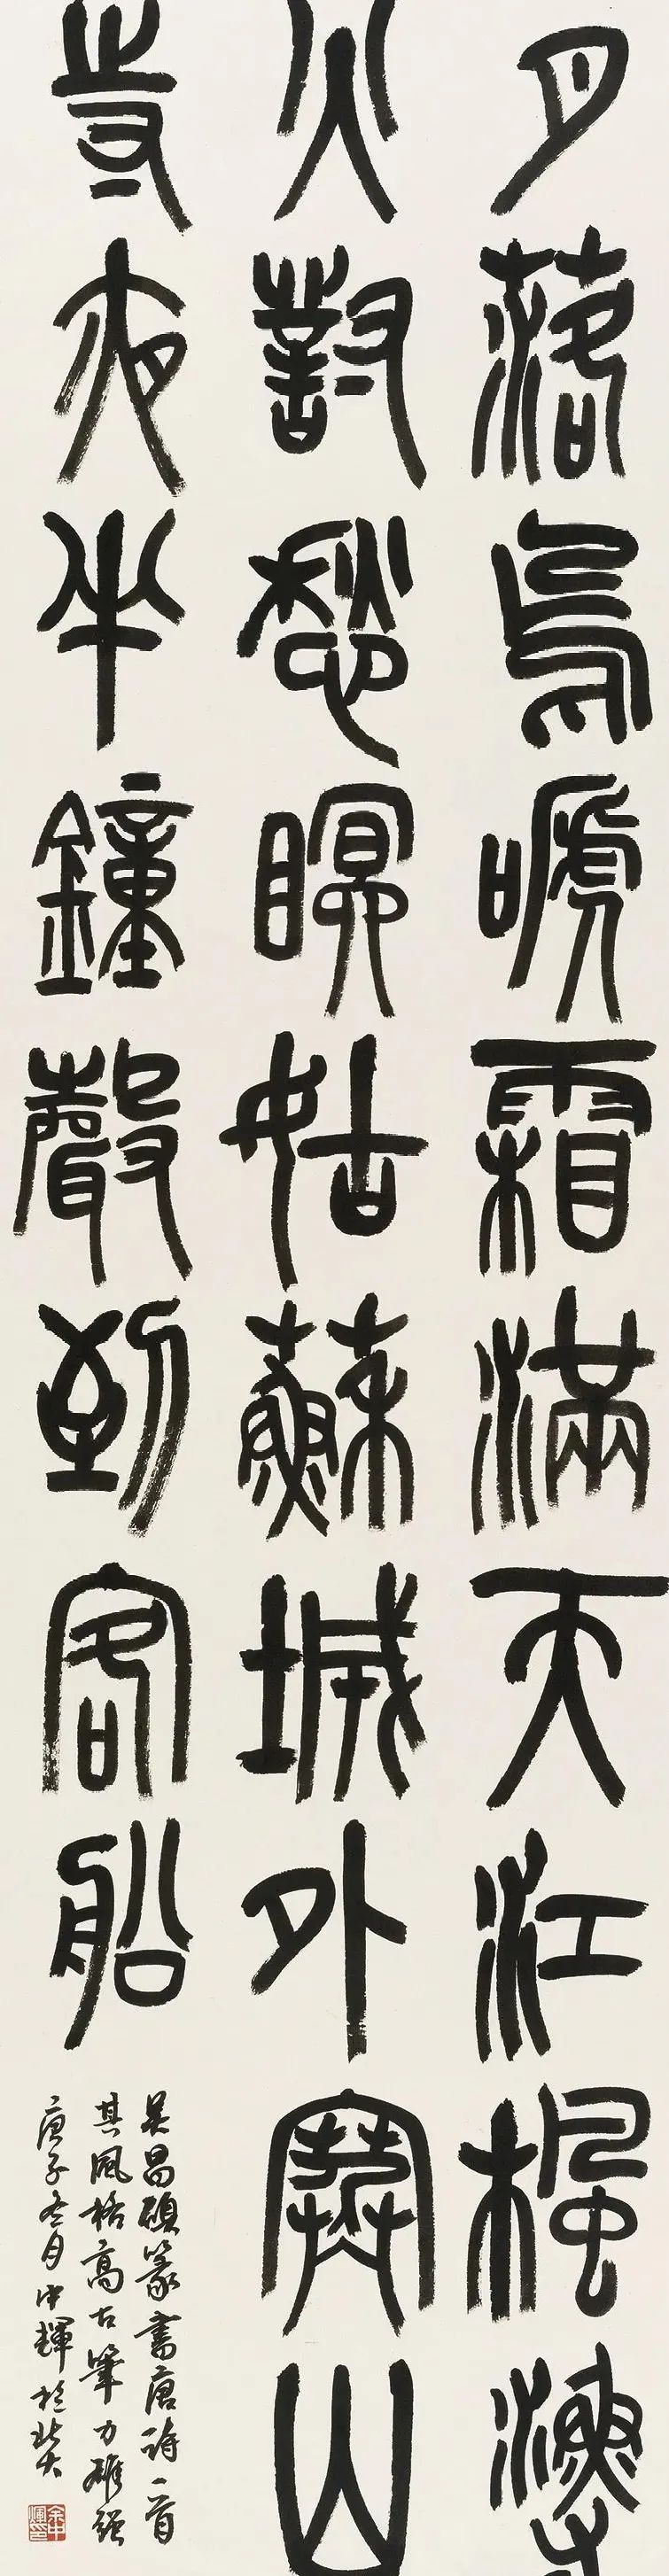 月落烏嗁霜滿天江楓漁
火對愁瞑姑蘇城外寒山
寺夜半鐘聲到客船
吴昌碩篆書唐詩一首
其風格高古筆力雄强
庚子冬月中輝於北大
余中輝印